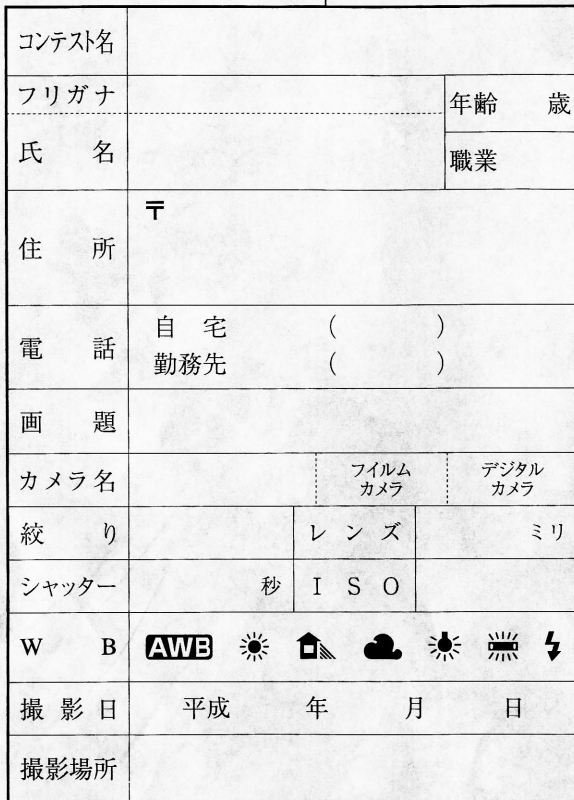 コンテスト名
フリガナ
年齢 歳
氏 名
職業
〒
住 所
電 話
自 宅 ( )
勤務先 ( )
画 題
カメラ名
フイルム
カメラ
デジタル
カメラ
絞 り
レ ン ズ
ミリ
シャッター 秒
I S O
W B AWB
撮 影 日 平成 年 月 日
撮影場所